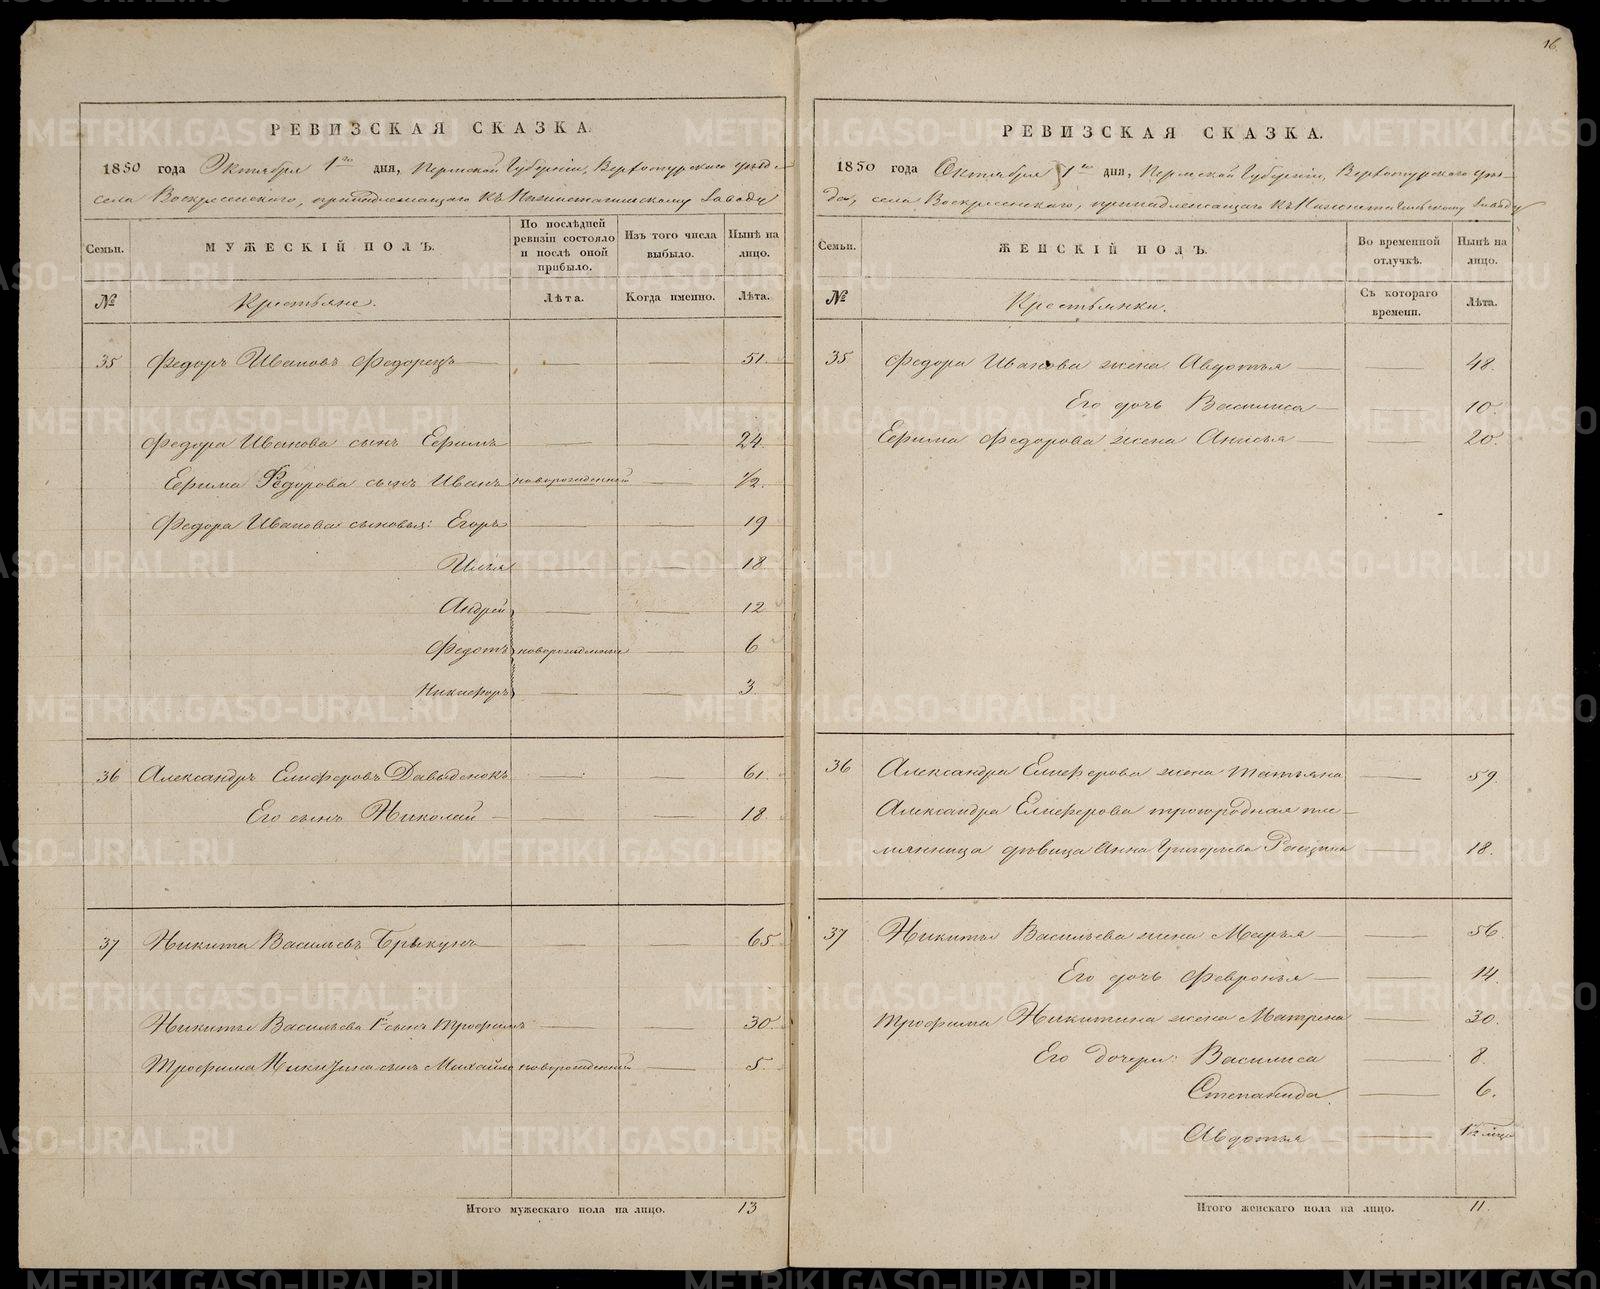 16.
РЕВИЗСКАЯ СКАЗКА.
1850 года Октября 1го дня, Пермской Губерніи, Верхотурскаго уѣзда
села Воскресенскаго, принадлежащаго къ Нижнетагильскому Заводу
Семьи.
МУЖЕСКІЙ ПОЛЪ.
По послѣдней ревизіи состояло и послѣ оной прибыло.
Изъ того числа выбыло.
Нынѣ на лицо.
№
Крестьяне.
Лѣта.
Когда именно.
Лѣта.
35 Федоръ Ивановъ Федорецъ 51.
Федора Иванова сынъ Ефимъ 24.
Ефима Федорова сынъ Иванъ новорожденный ½.
Федора Иванова сыновья: Егоръ 19
Илья 18
Андрей 12
Федотъ новорожденные 6
Никифоръ 3.
36 Александръ Елиферовъ Давиденокъ 61.
Его сынъ Николай 18.
37 Никита Васильевъ Брыкунъ 65.
Никиты Васильева 1й сынъ Трофимъ 30.
Трофима Никитина сынъ Михайло новорожденный 5.
Итого мужескаго пола на лицо. 13
РЕВИЗСКАЯ СКАЗКА.
1850 года Октября 1го дня, Пермской Губерніи, Верхотурскаго уѣз-
да, села Воскресенскаго, принадлежащаго къ Нижнетагильскому Заводу
Семьи.
ЖЕНСКІЙ ПОЛЪ.
Во временной отлучкѣ.
Нынѣ на лицо.
№
Крестьянки.
Съ котораго времени.
Лѣта.
35 Федора Иванова жена Авдотья 48.
Его дочь Василиса 10.
Ефима Федорова жена Анисья 20.
36 Александра Елиферова жена Татьяна 59.
Александра Елиферова троюродная пле-
мянница дѣвица Анна Григорьева 18.
37 Никиты Васильева жена Марья 56.
Его дочь Февронья 14.
Трофима Никитина жена Матрена 30.
Его дочери: Василиса 8.
Степанида 6.
Авдотья
Итого женскаго пола на лицо. 11.
METRIKI.GASO-URAL.RU